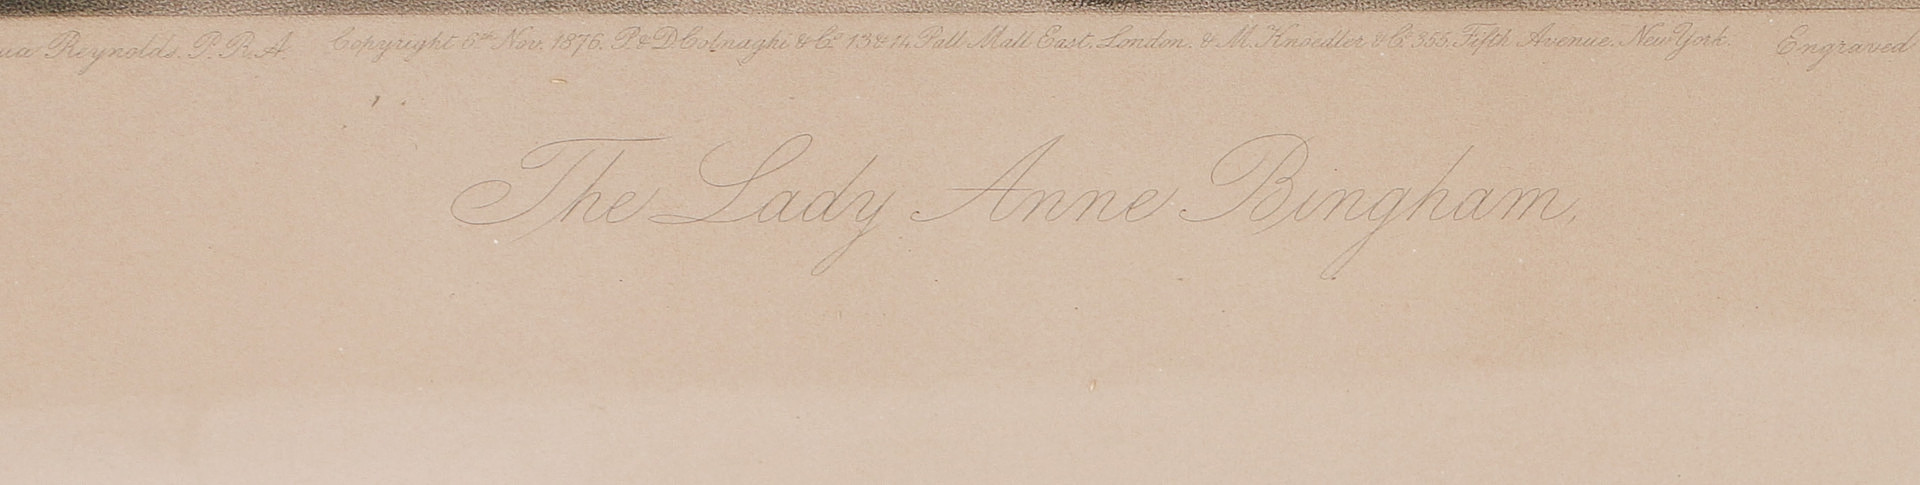 ua Reynolds. P. R. A. Copyright 6th Nov. 1876. P. & D. Colnaghi & Co. 13 & 14 Pall Mall East. London. & M. Knoedler & Co. 355. Fifth Avenue. New York. Engraved
The Lady Anne Bingham,